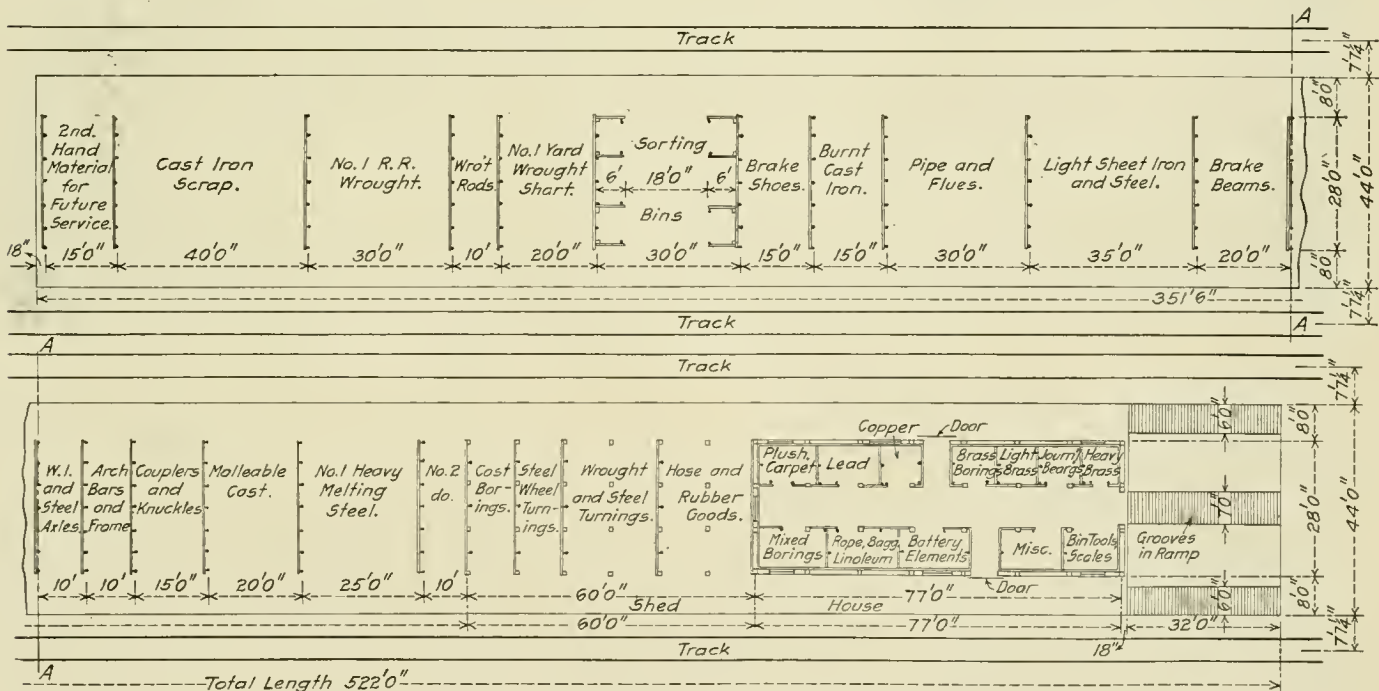 A
Track
2nd.
Hand
Material
for
Future
Service.
Cast Iron
Scrap.
No. 1 R. R.
Wrought.
Wro't
Rods.
No. 1 Yard
Wrought
Short.
Sorting
6' 18'0" 6'
Bins
Brake
Shoes.
Burnt
Cast
Iron.
Pipe and
Flues.
Light Sheet Iron
and Steel.
Brake
Beams.
7'1¼"
8'0"
28'0"
44'0"
8'0"
7'1¼"
18" 15'0" 40'0" 30'0" 10' 20'0" 30'0" 15'0" 15'0" 30'0" 35'0" 20'0"
351'6"
Track
A
A
Track
W.I.
and
Steel
Axles.
Arch
Bars
and
Frame
Couplers
and
Knuckles
Malleable
Cast.
No. 1 Heavy
Melting
Steel.
No. 2
do.
Cast
Bor-
ings.
Steel
Wheel
Turn-
ings.
Wrought
and Steel
Turnings.
Hose and
Rubber
Goods.
Copper
Door
Plush,
Carpet
Lead
Brass
Borings
Light
Brass
Journ'l
Bear'gs
Heavy
Brass
Mixed
Borings
Rope, Bagg.
Linoleum
Battery
Elements
Misc.
Bin Tools
Scales
Door
Grooves
in Ramp
6'0"
7'0"
6'0"
7'1¼"
8'0"
28'0"
44'0"
8'0"
7'1¼"
10' 10' 15'0" 20'0" 25'0" 10' 60'0" 77'0"
Shed House
60'0" 77'0" 18" 32'0"
Track
A
Total Length 522'0"